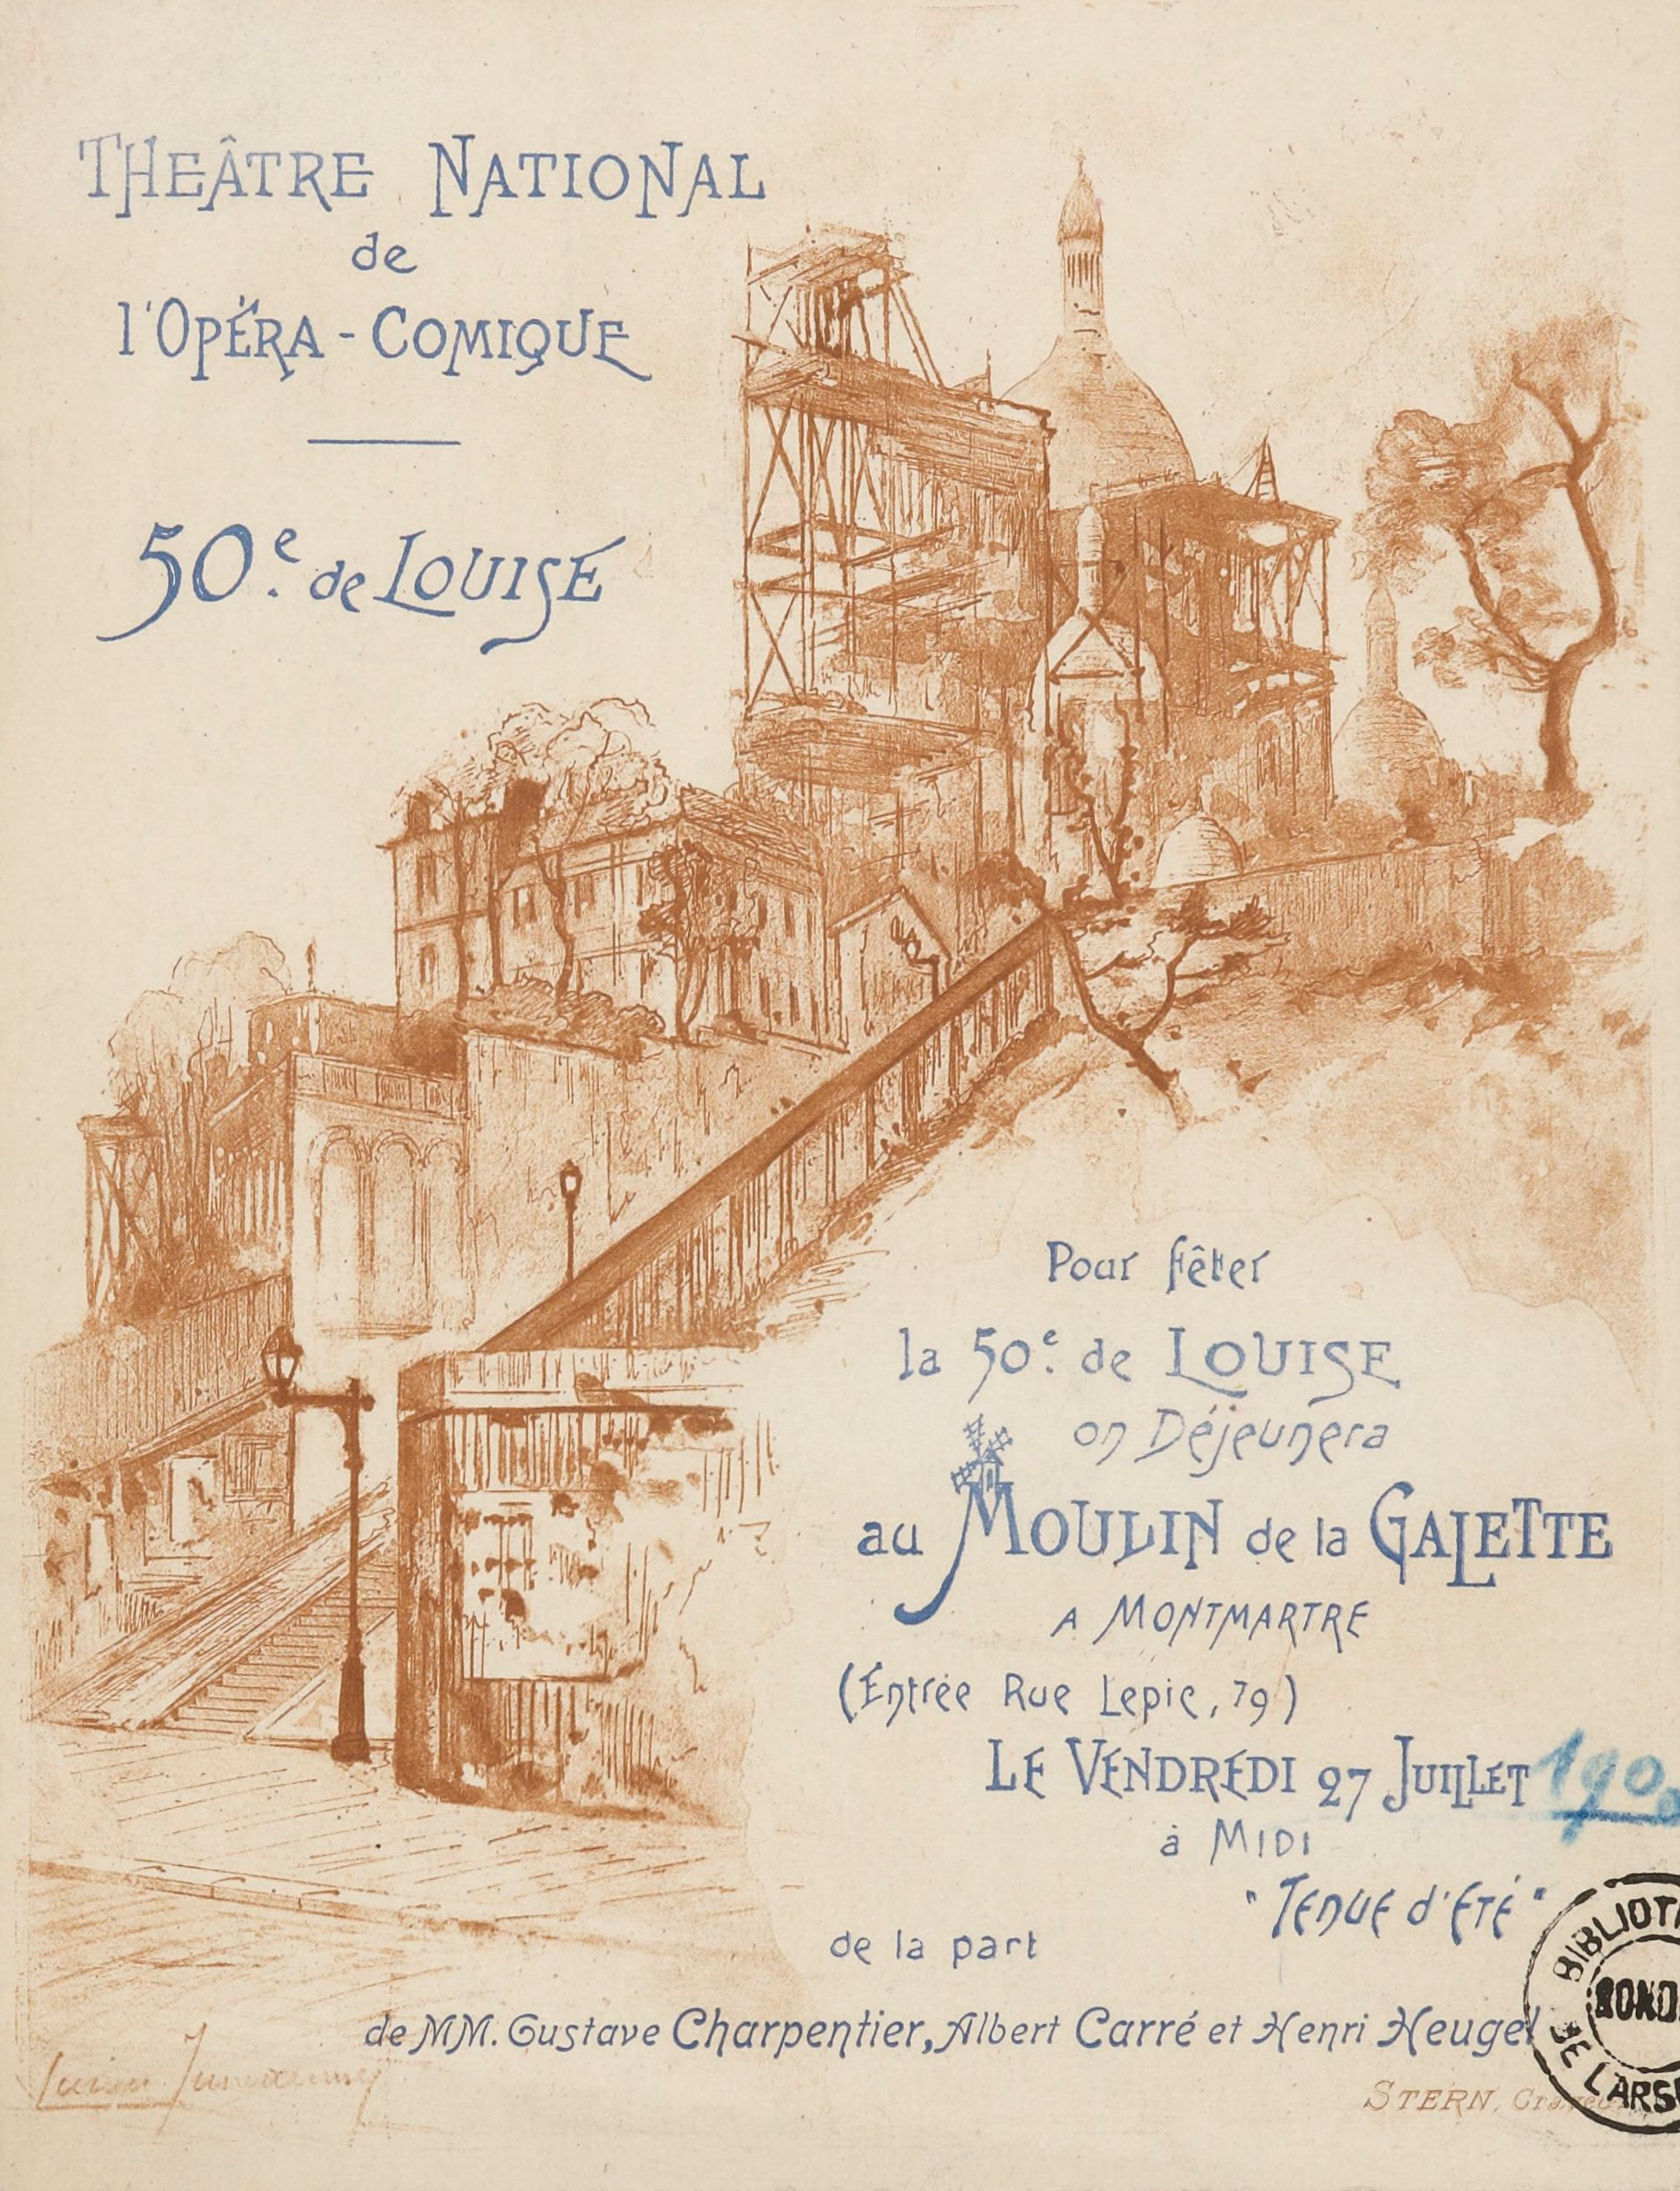 THEÂTRE NATIONAL
de
l'OPÉRA-COMIQUE
50e. de LOUISE
Pour fêter
la 50e. de LOUISE
on Déjeunera
au MOULIN de la GALETTE
A MONTMARTRE
(Entrée Rue Lepic, 79)
LE VENDREDI 27 JUILLET 1900
à MIDI
"TENUE d'ETÉ"
de la part
de MM. Gustave Charpentier, Albert Carré et Henri Heugel
STERN,